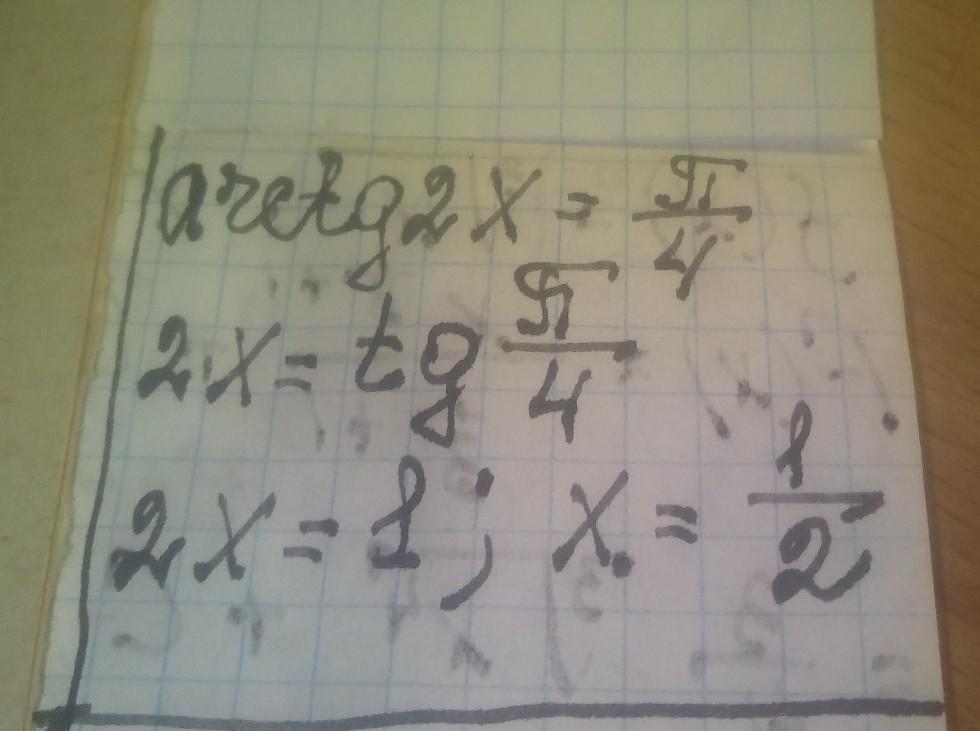 arctg 2x = π/4
2x = tg π/4
2x = 1; x = 1/2